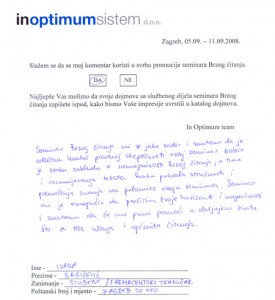 inoptimumsistem d.o.o.
Zagreb, 05.09. – 11.09.2008.
Slažem se da se moj komentar koristi u svrhu promocije seminara Brzog čitanja.
DA NE
Najljepše Vas molimo da svoje dojmove sa službenog dijela seminara Brzog
čitanja zapišete ispod, kako bismo Vaše impresije uvrstili u katalog dojmova.
In Optimum team
Seminar Brzog čitanja mi se jako svidio i smatram da je
odličan. Unatoč prvotnoj skeptičnosti ovaj seminar pobio
je svaku zabludu o nemogućnosti Brzog čitanja, a time
i razumijevanja teksta. Svaka pohvala stručnosti i
prenošenju znanja na polaznike ovoga seminara. Seminar
mi je omogućio da proširim svoje horizonte i mogućnosti
i smatram da će mi puno pomoći u daljnjem životu
što se tiče učenja i općenito čitanja.
Ime - IVANA
Prezime -
Zanimanje - STUDENT / FARMACEUTSKI TEHNIČAR
Poštanski broj i mjesto - ZAGREB 10 000